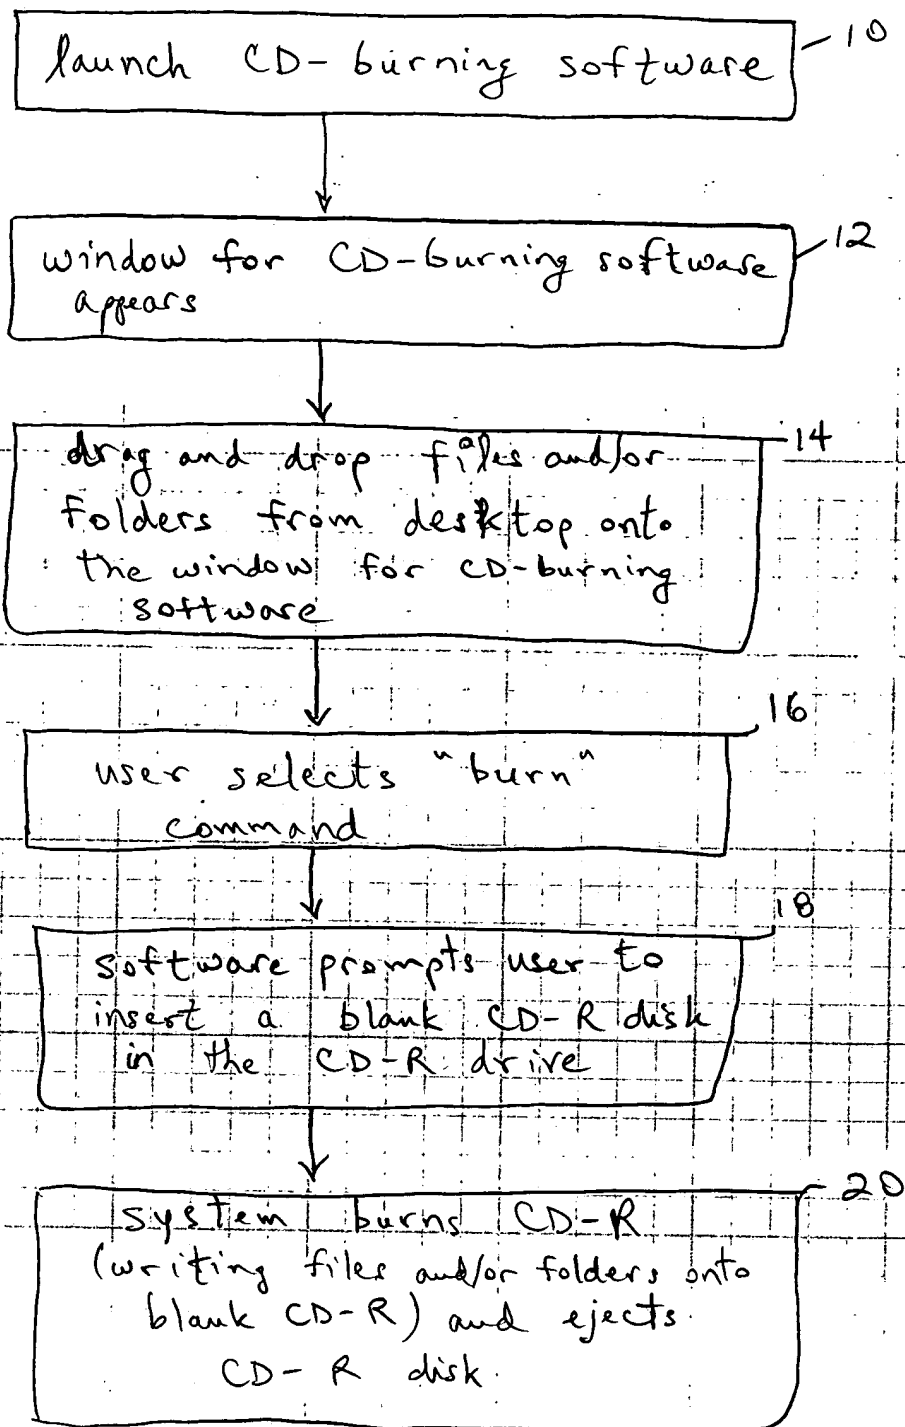 launch CD-burning software
10
window for CD-burning software
appears
12
drag and drop files and/or
folders from desktop onto
the window for CD-burning
software
14
user selects "burn"
command
16
software prompts user to
insert a blank CD-R disk
in the CD-R drive
18
system burns CD-R
(writing files and/or folders onto
blank CD-R) and ejects
CD-R disk.
20